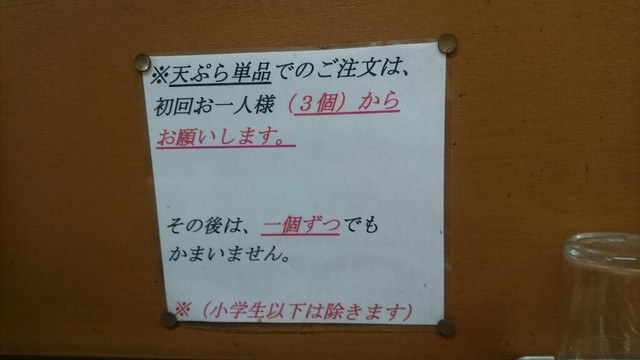 ※天ぷら単品でのご注文は、
初回お一人様（３個）から
お願いします。
その後は、一個ずつでも
かまいません。
※（小学生以下は除きます）